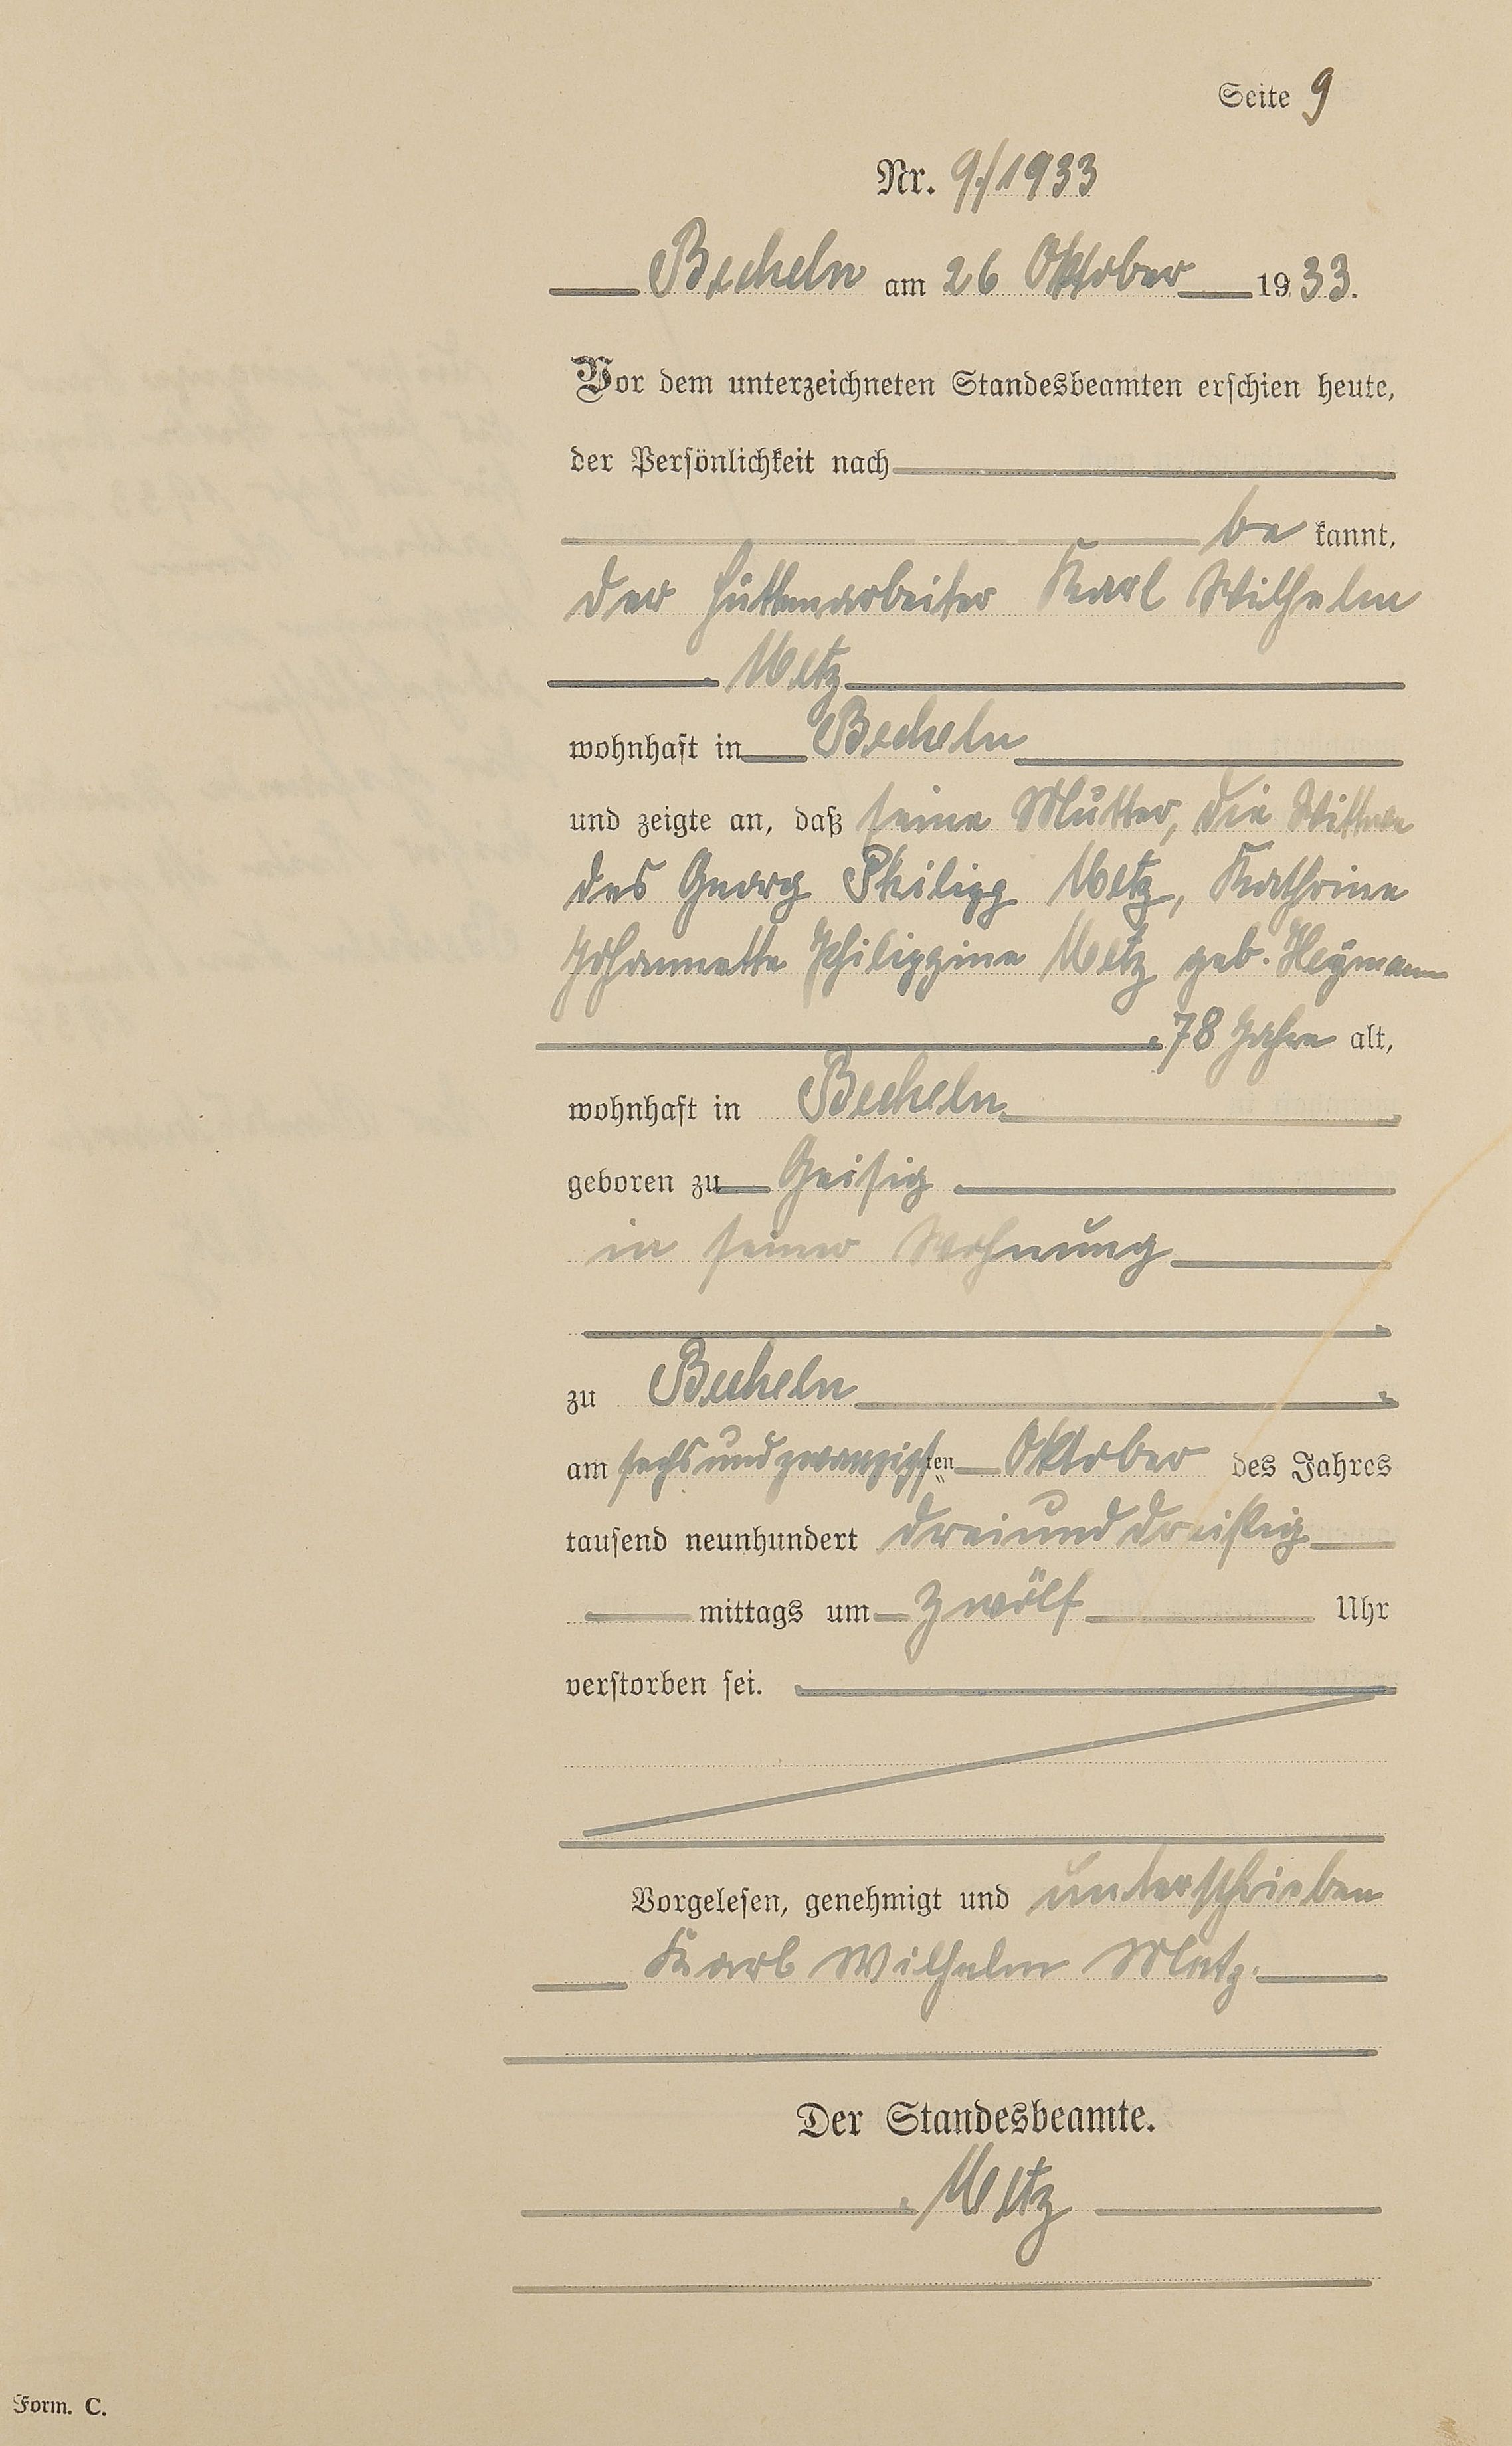 Seite 9
Nr. 9/1933
Becheln am 26 Oktober 1933.
Vor dem unterzeichneten Standesbeamten erschien heute,
der Persönlichkeit nach
be kannt,
der Hüttenarbeiter Karl Wilhelm
Metz
wohnhaft in Becheln
und zeigte an, daß seine Mutter, die Wittwe
des Georg Philipp Metz, Kathrine
Johannette Philippine Metz geb. Heymann
78 Jahre alt,
wohnhaft in Becheln
geboren zu Geisig
in seiner Wohnung
zu Becheln
am sechsundzwanzigsten Oktober des Jahres
tausend neunhundert dreiunddreißig
mittags um zwölf Uhr
verstorben sei.
Vorgelesen, genehmigt und unterschrieben
Karl Wilhelm Metz.
Der Standesbeamte.
Metz
Form. C.